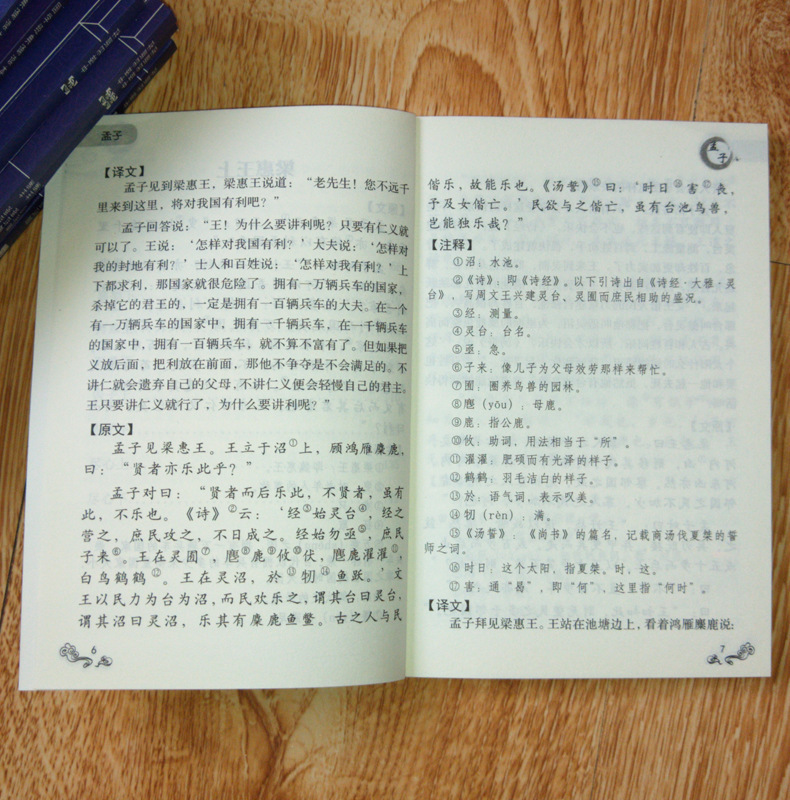 孟子
【译文】
孟子见到梁惠王，梁惠王说道：“老先生！您不远千
里来到这里，将对我国有利吧？”
孟子回答说：“王！为什么要讲利呢？只要有仁义就
可以了。王说：‘怎样对我国有利？’大夫说：‘怎样对
我的封地有利？’士人和百姓说：‘怎样对我有利？’上
下都求利，那国家就很危险了。拥有一万辆兵车的国家，
杀掉它的君王的，一定是拥有一百辆兵车的大夫。在一个
有一万辆兵车的国家中，拥有一千辆兵车，在一千辆兵车
的国家中，拥有一百辆兵车，就不算不富有了。但如果把
义放后面，把利放在前面，那他不争夺是不会满足的。不
讲仁就会遗弃自己的父母，不讲仁义便会轻慢自己的君主。
王只要讲仁义就行了，为什么要讲利呢？”
【原文】
孟子见梁惠王。王立于沼①上，顾鸿雁麋鹿，
曰：“贤者亦乐此乎？”
孟子对曰：“贤者而后乐此，不贤者，虽有
此，不乐也。《诗》②云：‘经③始灵台④，经之
营之，庶民攻之，不日成之。经始勿亟⑤，庶民
子来⑥。王在灵囿⑦，麀⑧鹿⑨攸⑩伏，麀鹿濯濯⑪，
白鸟鹤鹤⑫。王在灵沼，於⑬牣⑭鱼跃。’文
王以民力为台为沼，而民欢乐之，谓其台曰灵台，
谓其沼曰灵沼，乐其有麋鹿鱼鳖。古之人与民
6
孟子
偕乐，故能乐也。《汤誓》⑮曰：‘时日⑯害⑰丧，
予及女偕亡。’民欲与之偕亡，虽有台池鸟兽，
岂能独乐哉？”
【注释】
①沼：水池。
②《诗》：即《诗经》。以下引诗出自《诗经·大雅·灵
台》，写周文王兴建灵台、灵囿而庶民相助的盛况。
③经：测量。
④灵台：台名。
⑤亟：急。
⑥子来：像儿子为父母效劳那样来帮忙。
⑦囿：圈养鸟兽的园林。
⑧麀（yōu）：母鹿。
⑨鹿：指公鹿。
⑩攸：助词，用法相当于“所”。
⑪濯濯：肥硕而有光泽的样子。
⑫鹤鹤：羽毛洁白的样子。
⑬於：语气词，表示叹美。
⑭牣（rèn）：满。
⑮《汤誓》：《尚书》的篇名，记载商汤伐夏桀的誓
师之词。
⑯时日：这个太阳，指夏桀。时，这。
⑰害：通“曷”，即“何”，这里指“何时”。
【译文】
孟子拜见梁惠王。王站在池塘边上，看着鸿雁麋鹿说：
7